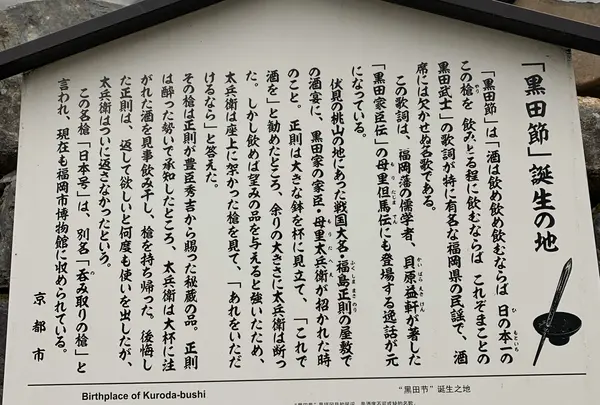 「黒田節」誕生の地
「黒田節」は「酒は飲め飲め飲むならば　日の本一の
この槍を　飲みとる程に飲むならば　これぞまことの
黒田武士」の歌詞が特に有名な福岡県の民謡で、酒
席には欠かせぬ名歌である。
この歌詞は、福岡藩の儒学者、貝原益軒が著した
「黒田家臣伝」の母里但馬伝にも登場する逸話が元
になっている。
伏見の桃山の地にあった戦国大名・福島正則の屋敷で
の酒宴に、黒田家の家臣・母里太兵衛が招かれた時
のこと。正則は大きな鉢を杯に見立て、「これで
酒を」と勧めたところ、余りの大きさに太兵衛は断っ
た。しかし飲めば望みの品を与えると強いたため、
太兵衛は座上に架かった槍を見て、「あれをいただ
けるなら」と答えた。
その槍は正則が豊臣秀吉から賜った秘蔵の品。正則
は酔った勢いで承知したところ、太兵衛は大杯に注
がれた酒を見事飲み干し、槍を持ち帰った。後悔し
た正則は、返して欲しいと何度も使いを出したが、
太兵衛はついに返さなかったという。
この名槍「日本号」は、別名「呑み取りの槍」と
言われ、現在も福岡市博物館に収められている。
京都市
Birthplace of Kuroda-bushi
“黑田节”诞生之地